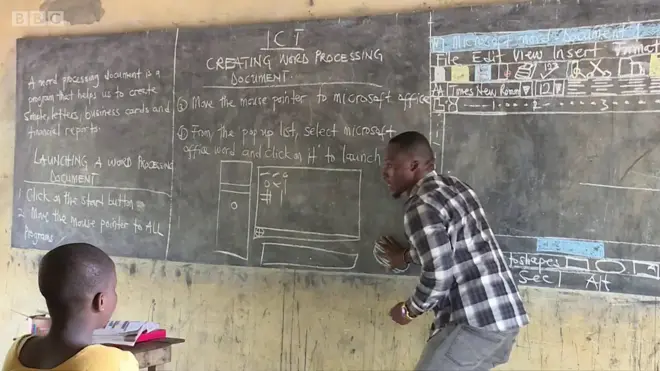 BBC
A word processing document is a
program that helps us to create
simple, letters, business cards and
financial reports.
LAUNCHING A WORD PROCESSING
DOCUMENT
1 Click on the start button
2 Move the mouse pointer to ALL
Programs
ICT
CREATING WORD PROCESSING
DOCUMENT.
Move the mouse pointer to microsoft office
From the pop up list, select microsoft
office word and click on it to launch
Microsoft word Document
File Edit View Insert Format
Times New Roman 12
1 2 3
toshapes
Sec At